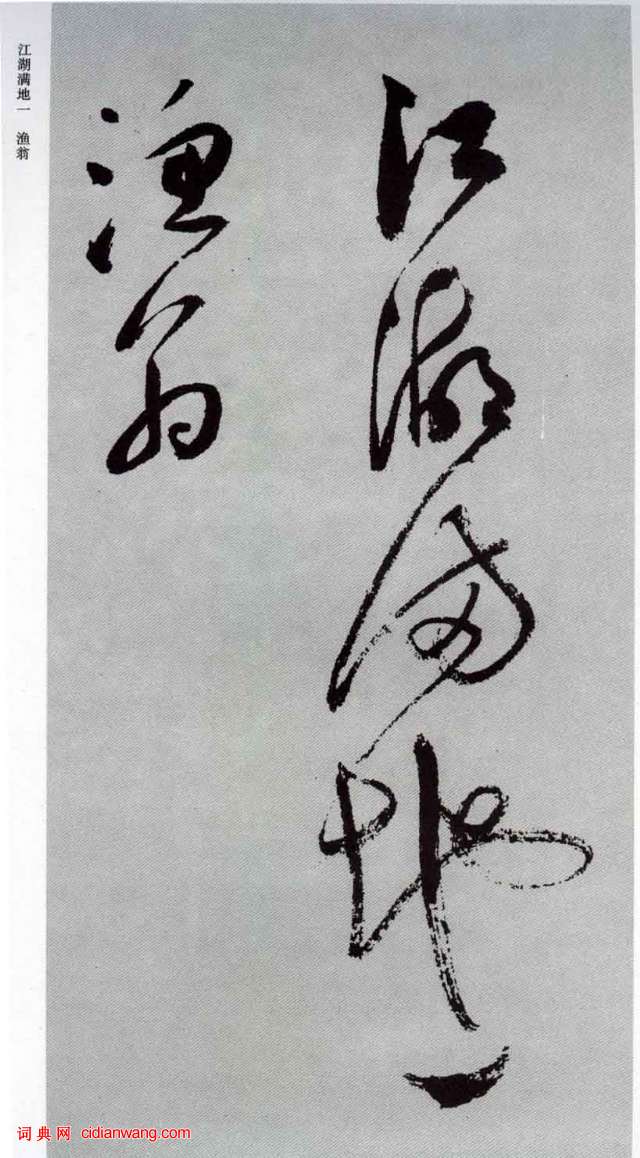 江湖满地一
渔翁
江湖满地一 渔翁
词典网 cidianwang.com